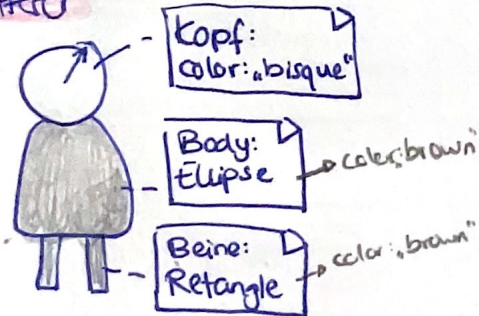 Kopf:
color: „bisque"
Body:
Ellipse
color: brown"
Beine:
Retangle
color: „brown"